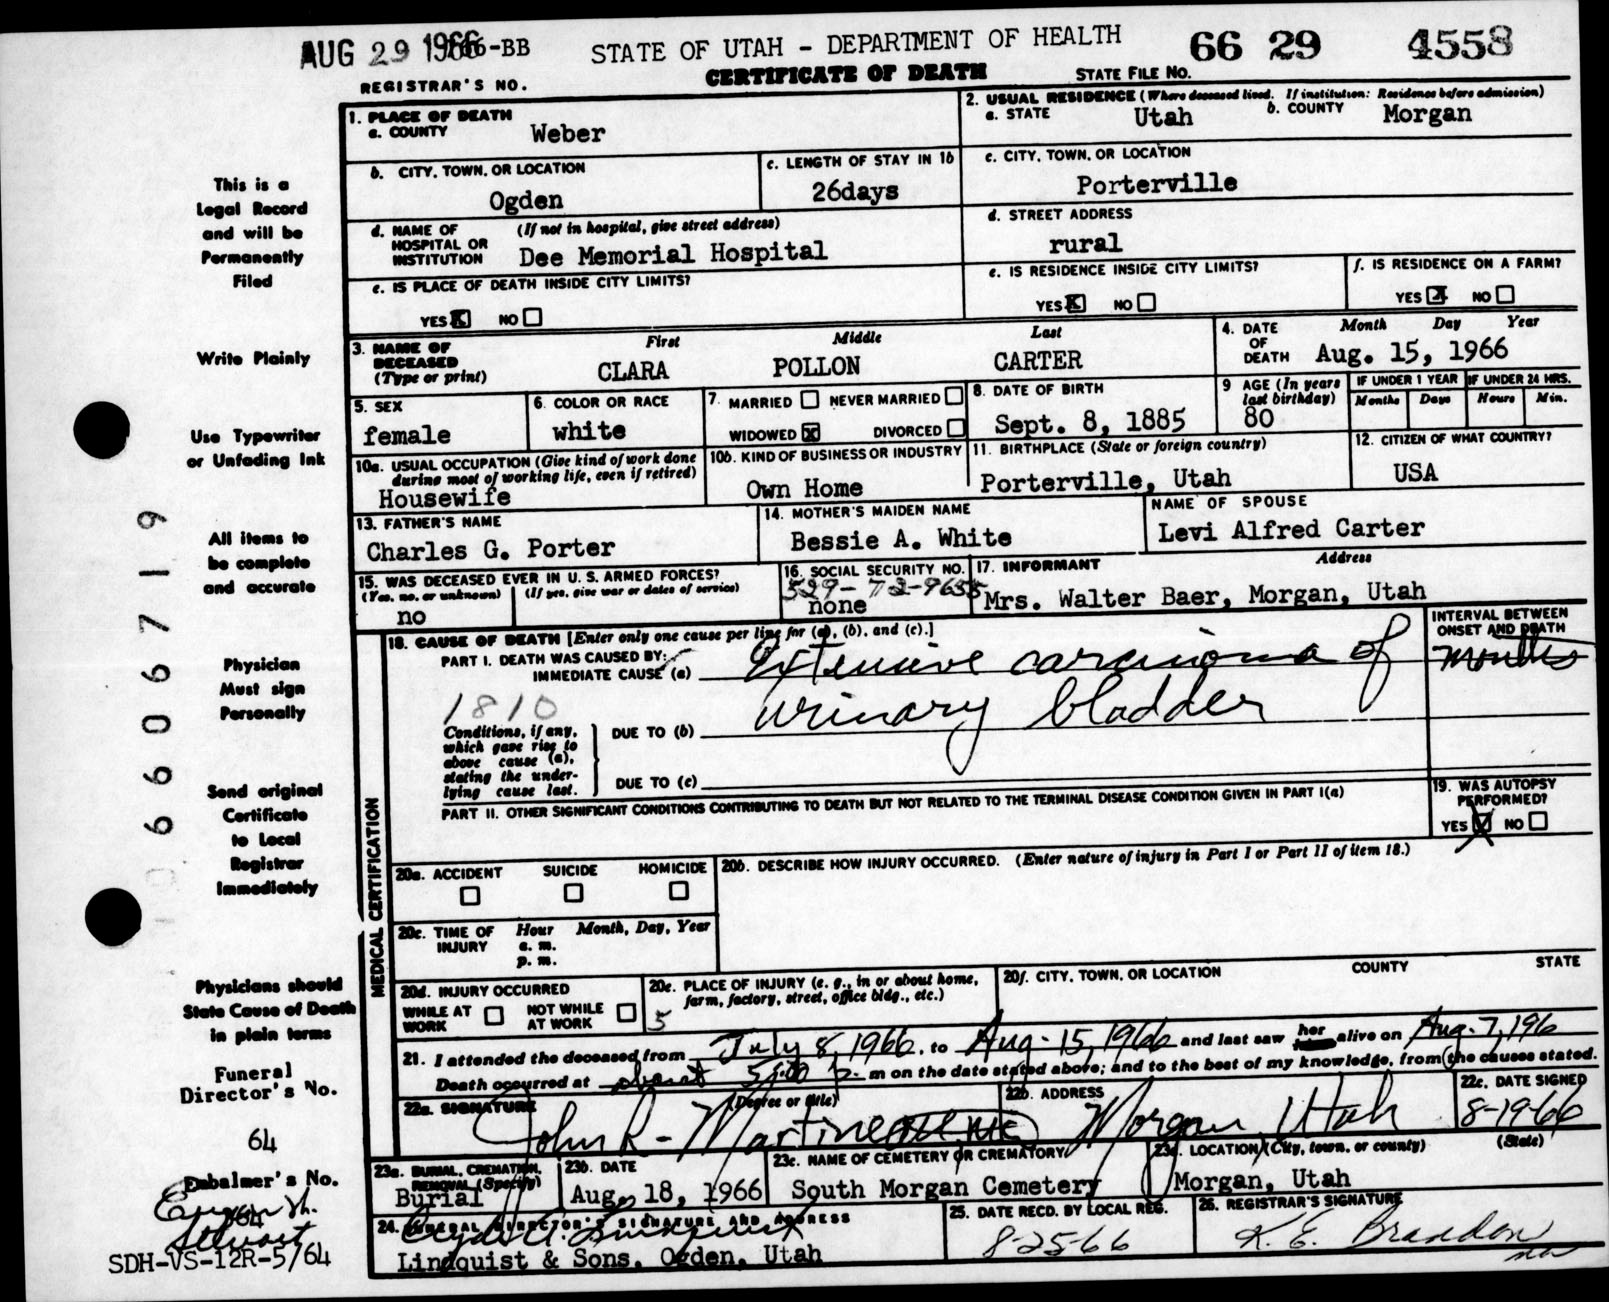 AUG 29 1966 -BB
STATE OF UTAH - DEPARTMENT OF HEALTH
66 29 4558
REGISTRAR'S NO.
CERTIFICATE OF DEATH
STATE FILE NO.
1. PLACE OF DEATH
a. COUNTY Weber
2. USUAL RESIDENCE (Where deceased lived. If institution: Residence before admission)
a. STATE Utah b. COUNTY Morgan
b. CITY, TOWN, OR LOCATION
Ogden
c. LENGTH OF STAY IN 1b
26days
c. CITY, TOWN, OR LOCATION
Porterville
d. NAME OF HOSPITAL OR INSTITUTION (If not in hospital, give street address)
Dee Memorial Hospital
d. STREET ADDRESS
rural
e. IS PLACE OF DEATH INSIDE CITY LIMITS?
YES X NO
e. IS RESIDENCE INSIDE CITY LIMITS?
YES X NO
f. IS RESIDENCE ON A FARM?
YES X NO
3. NAME OF DECEASED (Type or print)
First Middle Last
CLARA POLLON CARTER
4. DATE OF DEATH Month Day Year
Aug. 15, 1966
5. SEX
female
6. COLOR OR RACE
white
7. MARRIED NEVER MARRIED
WIDOWED X DIVORCED
8. DATE OF BIRTH
Sept. 8, 1885
9 AGE (In years last birthday)
80
IF UNDER 1 YEAR
Months Days
IF UNDER 24 HRS.
Hours Min.
10a. USUAL OCCUPATION (Give kind of work done during most of working life, even if retired)
Housewife
10b. KIND OF BUSINESS OR INDUSTRY
Own Home
11. BIRTHPLACE (State or foreign country)
Porterville, Utah
12. CITIZEN OF WHAT COUNTRY?
USA
13. FATHER'S NAME
Charles G. Porter
14. MOTHER'S MAIDEN NAME
Bessie A. White
NAME OF SPOUSE
Levi Alfred Carter
15. WAS DECEASED EVER IN U. S. ARMED FORCES?
(Yes, no, or unknown) (If yes, give war or dates of service)
no
16. SOCIAL SECURITY NO.
529-72-9655
none
17. INFORMANT Address
Mrs. Walter Baer, Morgan, Utah
MEDICAL CERTIFICATION
18. CAUSE OF DEATH [Enter only one cause per line for (a), (b), and (c).]
INTERVAL BETWEEN ONSET AND DEATH
PART I. DEATH WAS CAUSED BY:
IMMEDIATE CAUSE (a) Extensive carcinoma of
months
1810
urinary bladder
Conditions, if any, which gave rise to above cause (a), stating the underlying cause last.
DUE TO (b)
DUE TO (c)
PART II. OTHER SIGNIFICANT CONDITIONS CONTRIBUTING TO DEATH BUT NOT RELATED TO THE TERMINAL DISEASE CONDITION GIVEN IN PART I(a)
19. WAS AUTOPSY PERFORMED?
YES NO
20a. ACCIDENT SUICIDE HOMICIDE
20b. DESCRIBE HOW INJURY OCCURRED. (Enter nature of injury in Part I or Part II of item 18.)
20c. TIME OF INJURY Hour Month, Day, Year
a. m.
p. m.
20d. INJURY OCCURRED
WHILE AT WORK NOT WHILE AT WORK
20e. PLACE OF INJURY (e. g., in or about home, farm, factory, street, office bldg., etc.)
5
20f. CITY, TOWN, OR LOCATION COUNTY STATE
21. I attended the deceased from July 8, 1966, to Aug. 15, 1966 and last saw her alive on Aug. 7, 196
Death occurred at about 5:00 p. m on the date stated above; and to the best of my knowledge, from the causes stated.
22a. SIGNATURE (Degree or title)
John R. Martineau MD
22b. ADDRESS
Morgan, Utah
22c. DATE SIGNED
8-19-66
23a. BURIAL, CREMATION, REMOVAL (Specify)
Burial
23b. DATE
Aug. 18, 1966
23c. NAME OF CEMETERY OR CREMATORY
South Morgan Cemetery
23d. LOCATION (City, town, or county) (State)
Morgan, Utah
24. FUNERAL DIRECTOR'S SIGNATURE AND ADDRESS
Lindquist & Sons, Ogden, Utah
25. DATE RECD. BY LOCAL REG.
8-25-66
26. REGISTRAR'S SIGNATURE
K. E. Brandon
This is a
Legal Record
and will be
Permanently
Filed
Write Plainly
Use Typewriter
or Unfading Ink
All items to
be complete
and accurate
Physician
Must sign
Personally
Send original
Certificate
to Local
Registrar
Immediately
Physicians should
State Cause of Death
in plain terms
Funeral
Director's No.
64
Embalmer's No.
Stewart
SDH-VS-12R-5/64
6606719